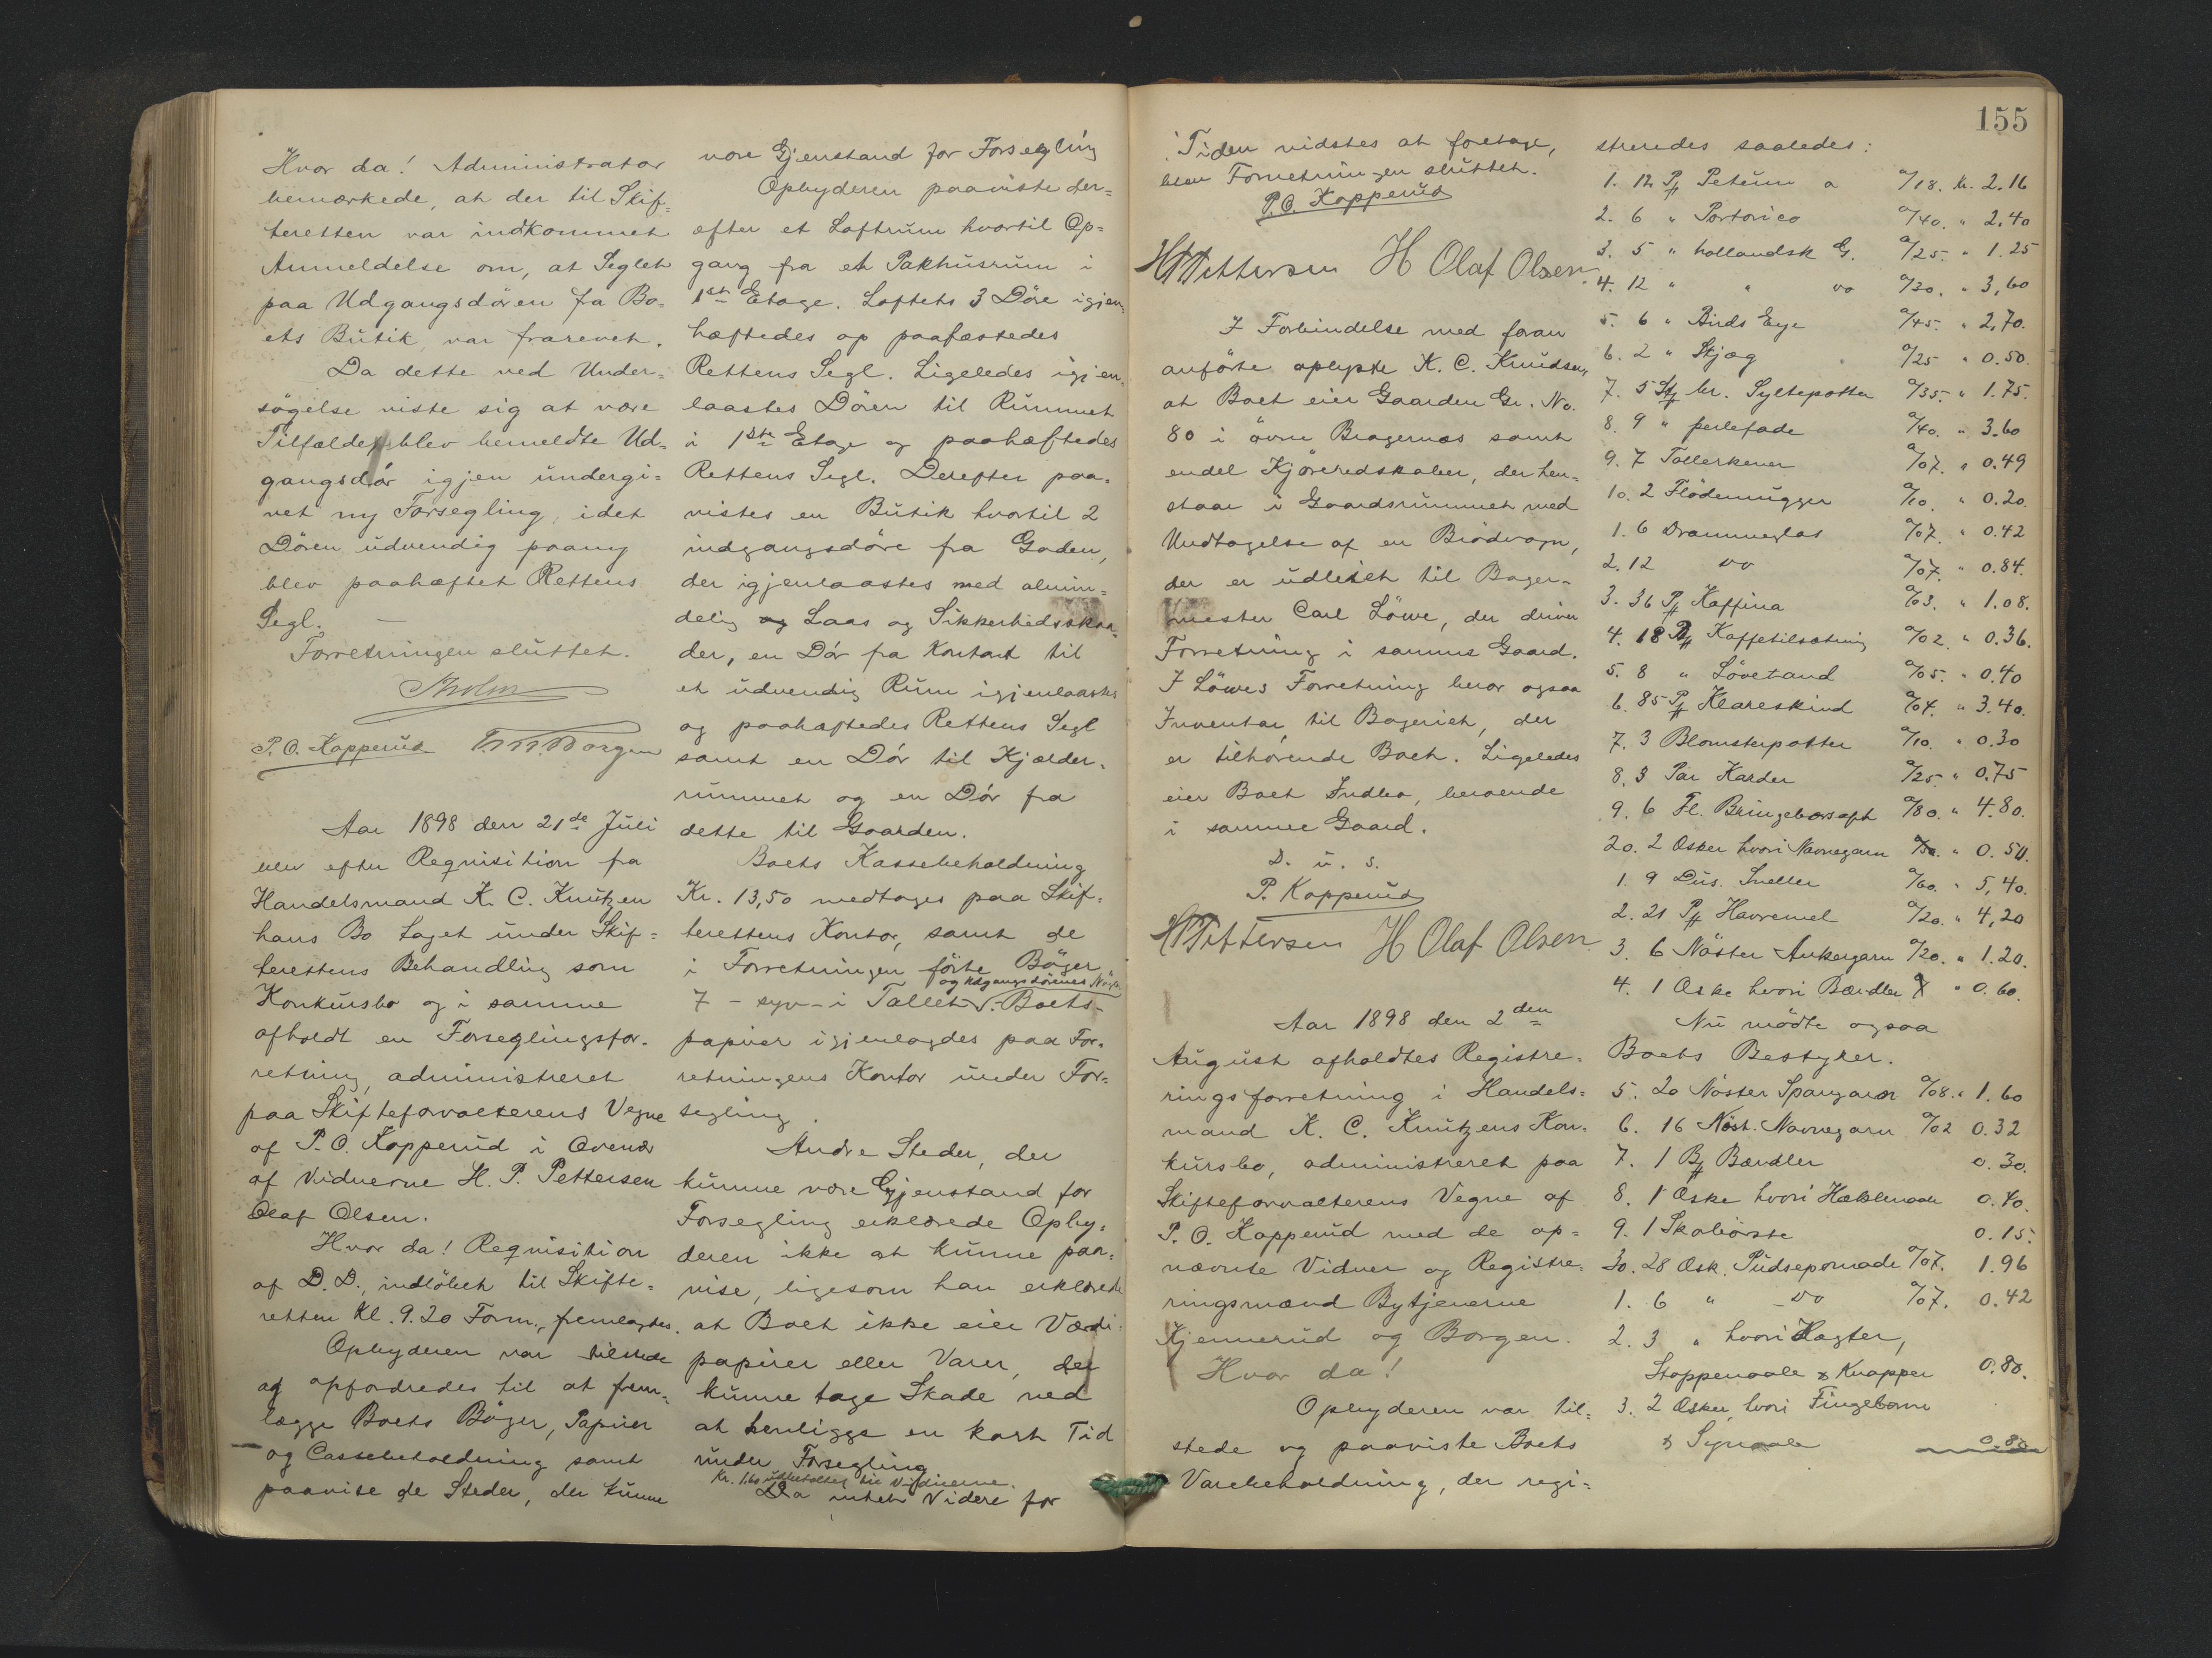 Hvor da! Administrator
bemærkede, at der til Skif-
teretten var indkommet
Anmeldelse om, at Seglet
paa Udgangsdören fa Bo-
ets Butik, var frarevet.
Da dette ved Under-
søgelse viste sig at være
Tilfældet, blev bemeldte Ud-
gangsdör igjen undergi-
vet ny Forsegling, idet
Dören udvendig paany
blev paahæftet Rettens
Segl.
Forretningen sluttet.
P. O. Kopperud Borgen
Aar 1898 den 21de Juli
blev efter Requisition fra
Handelsmand K. C. Knutzen
hans Bo taget under Skif-
terettens Behandling som
Konkursbo og i samme
afholdt en Forseglingsfor-
retning, administreret
paa Skifteforvalterens Vegne
af P. O. Kopperud i Overvær
af Vidnerne H. P. Pettersen
Olaf Olsen.
Hvor da! Requisition
af D. D., indløbet til Skifte-
retten Kl. 9.20 Form., fremlagdes.
Opbyderen var tilstede
og opfordredes til at frem-
lægge Boets Böger, Papirer
og Cassebeholdning samt
paavise de Steder, der kunne
være Gjenstand for Forsegling
Opbyderen paaviste der-
efter et Loftrum hvortil Op-
gang fra et Pakhusrum i
1ste Etage. Loftets 3 Döre igjen-
hæftedes op paafæstedes
Rettens Segl. Ligeledes igjen-
laastes Dören til Rummet
i 1ste Etage og paahæftedes
Rettens Segl. Derefter paa-
vistes en Butik hvortil 2
indgangsdöre fra Gaden,
der igjenlaastes med almin-
delig og Laas og Sikkerhedsskaa-
der, en Dör fra Kontart til
et udvendig Rum igjenlaastes
og paahæftedes Rettens Segl
samt en Dör til Kjælder-
rummet og en Dör fra
dette til Gaarden.
Boets Kassebeholdning
Kr. 13,50 medtoges paa Skif-
terettens Kontor, samt de
i Forretningen förte Böger
og Udgangsdörenes
7 - syv - i Tallet. Boets
papirer igjenlagdes paa For-
retningens Kontor under For-
segling.
Andre Steder, der
kunne være Gjenstand for
Forsegling erklærede Opby-
deren ikke at kunne paa-
vise, ligesom han erklærede
at Boet ikke eier Værdi-
papirer eller Varer, der
kunne tage Skade ved
at henligge en kort Tid
under Forsegling
Kr. 1.60 udbetaltes til Vidnerne.
Da intet videre for
Tiden vidstes at foretage,
blev Forretningen sluttet.
P. O. Kopperud
H P Pettersen H Olaf Olsen
I Forbindelse med foran
anförte oplyste K. C. Knudsen,
at Boet eier Gaarden Gr. No.
80 i övre Bragernæs samt
endel Kjöreredskaber, der hen-
staar i Gaardsrummet med
Undtagelse af en Brödvogn,
der er udleiet til Bager-
mester Carl Löwe, der driver
Forretning i samme Gaard.
I Löwes Forretning beror ogsaa
Inventar, til Bageriet, der
er tilhörende Boet. Ligeledes
eier Boet Indbo, beroende
i samme Gaard.
D. u. s.
P. Kopperud
H P Pettersen H Olaf Olsen
Aar 1898 den 2den
August afholdtes Registre-
ringsforretning i Handels-
mand K. C. Knutzens Kon-
kursbo, administreret paa
Skifteforvalterens Vegne af
P. O. Kopperud med de op-
nævnte Vidner og Registre-
ringsmænd Bytjenerne
Kjennerud og Borgen.
Hvor da!
Opbyderen var til-
stede og paaviste Boets
Varebeholdning, der regi-
155
streredes saaledes:
1. 12 Pk Petum a a/18. kr. 2.16
2. 6 " Portorico a/40. " 2.40
3. 5 " hollandsk G. a/25. " 1.25
4. 12 " " do a/30. " 3,60
5. 6 " Birds Eye a/45. " 2,70.
6. 2 " Skjæg a/25 " 0.50.
7. 5 Stk br. Syltepotter a/35. " 1.75.
8. 9 " perlefade a/40. " 3.60
9. 7 Tallerkener a/07. " 0.49
10. 2 Flödemugger a/10. " 0.20.
1. 6 Drammeglas a/07. " 0.42
2. 12 do a/07. " 0.84.
3. 36 Pk Kaffina a/03. " 1.08.
4. 18 Pk Kaffetilsætning a/02. " 0.36.
5. 8 " Lövetand a/05. " 0.40
6. 85 Pk Klareskind a/04. " 3.40.
7. 3 Blomsterpotter a/10. " 0.30
8. 3 Par Karder a/25. " 0.75
9. 6 Fl. Bringebærsaft a/80. " 4.80.
20. 2 Æsker hvori Navnegarn " 0.50.
1. 9 Dus. Sneller a/60. " 5,40.
2. 21 Pk Havremel a/20. " 4,20
3. 6 Nöster Ankergarn a/20. " 1.20.
4. 1 Æske hvori Bændler " 0.60.
Nu mödte ogsaa
Boets Bestyrer.
5. 20 Nöster Spangarn a/08. " 1.60
6. 16 Nöst. Navnegarn a/02 0.32
7. 1 Pk Bændler 0.30.
8. 1 Æske hvori Hæklenaale 0.40.
9. 1 Skobörste 0.15.
30. 28 Æsk. Pudsepomade a/07. 1.96
1. 6 " do a/07. 0.42
2. 3 " hvori Hagter,
Stoppenaale & Knapper 0.80.
3. 2 Æsker hvori Fingebørn
& Synaale 0.80